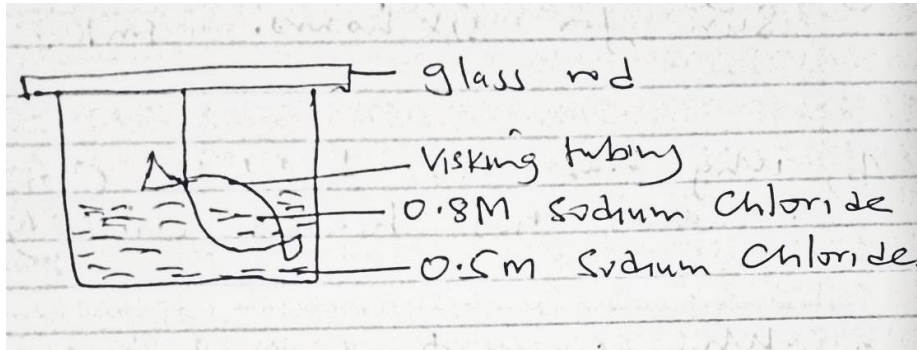 glass rod
Visking tubing
0.8M Sodium Chloride
0.5M Sodium Chloride